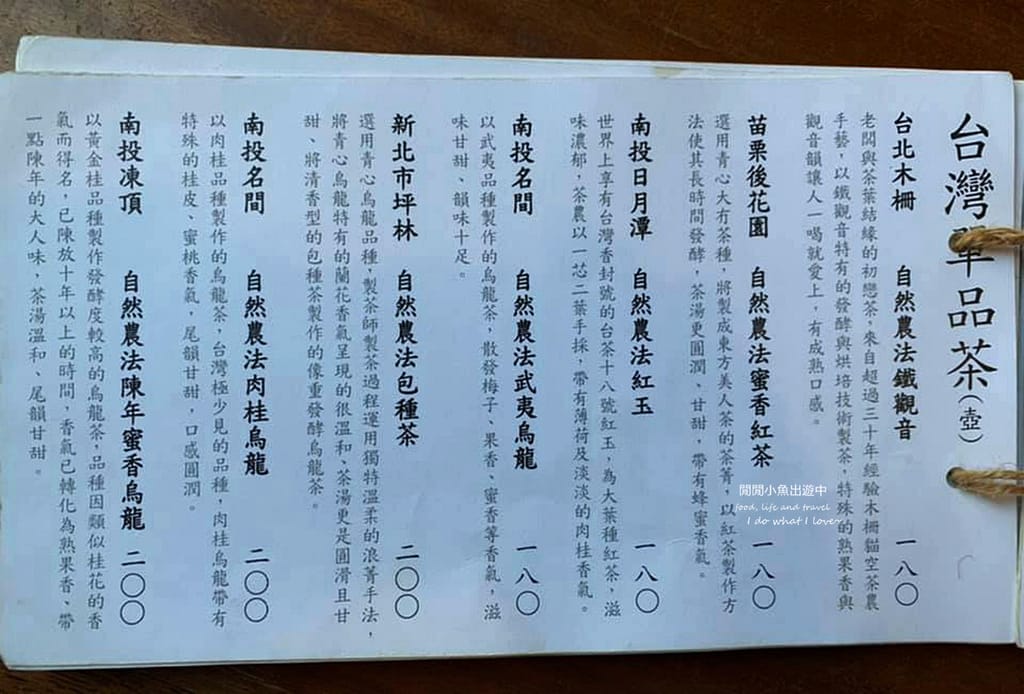 台灣單品茶(壺)
台北木柵 自然農法鐵觀音 一八〇
老闆與茶葉結緣的初戀茶,來自超過三十年經驗木柵貓空茶農
手藝,以鐵觀音特有的發酵與烘培技術製茶,特殊的熟果香與
觀音韻讓人一喝就愛上,有成熟口感。
苗栗後花園 自然農法蜜香紅茶 一八〇
選用青心大冇茶種,將製成東方美人茶的茶菁,以紅茶製作方
法使其長時間發酵,茶湯更圓潤、甘甜,帶有蜂蜜香氣。
南投日月潭 自然農法紅玉 一八〇
世界上享有台灣香封號的台茶十八號紅玉,為大葉種紅茶,滋
味濃郁,茶農以一芯二葉手採,帶有薄荷及淡淡的肉桂香氣。
南投名間 自然農法武夷烏龍 一八〇
以武夷品種製作的烏龍茶,散發梅子、果香、蜜香等香氣,滋
味甘甜、韻味十足。
新北市坪林 自然農法包種茶 二〇〇
選用青心烏龍品種,製茶師製茶過程運用獨特溫柔的浪菁手法,
將青心烏龍特有的蘭花香氣呈現的很溫和,茶湯更是圓滑且甘
甜、將清香型的包種茶製作的像重發酵烏龍茶。
南投名間 自然農法肉桂烏龍 二〇〇
以肉桂品種製作的烏龍茶,台灣極少見的品種,肉桂烏龍帶有
特殊的桂皮、蜜桃香氣,尾韻甘甜,口感圓潤。
南投凍頂 自然農法陳年蜜香烏龍 二〇〇
以黃金桂品種製作發酵度較高的烏龍茶,品種因類似桂花的香
氣而得名,已陳放十年以上的時間,香氣已轉化為熟果香、帶
一點陳年的大人味,茶湯溫和、尾韻甘甜。
閒閒小魚出遊中
food, life and travel
I do what I love~